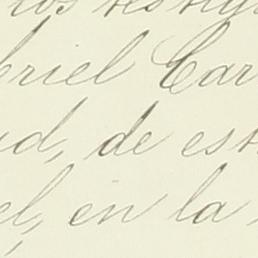 los testig
briel Car
ud, de est
el, en la